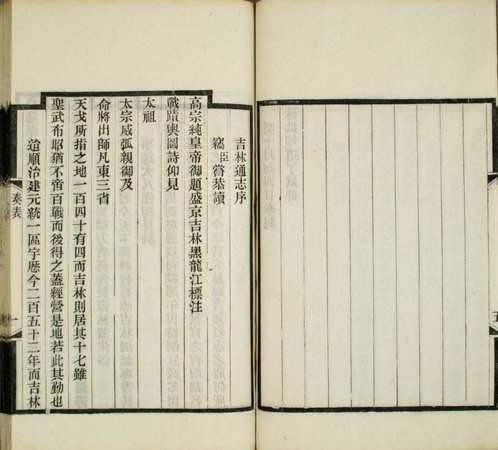 吉林通志序
竊臣嘗恭讀
高宗純皇帝御題盛京吉林黑龍江標注
戰蹟輿圖詩仰見
太祖
太宗威弧親御及
命將出師凡東三省
天戈所指之地一百四十有四而吉林則居其十七雖
聖武布昭猶不啻百戰而後得之蓋經營是地若此其勤也
迨順治建元統一區宇歷今二百五十二年而吉林
奏表
一